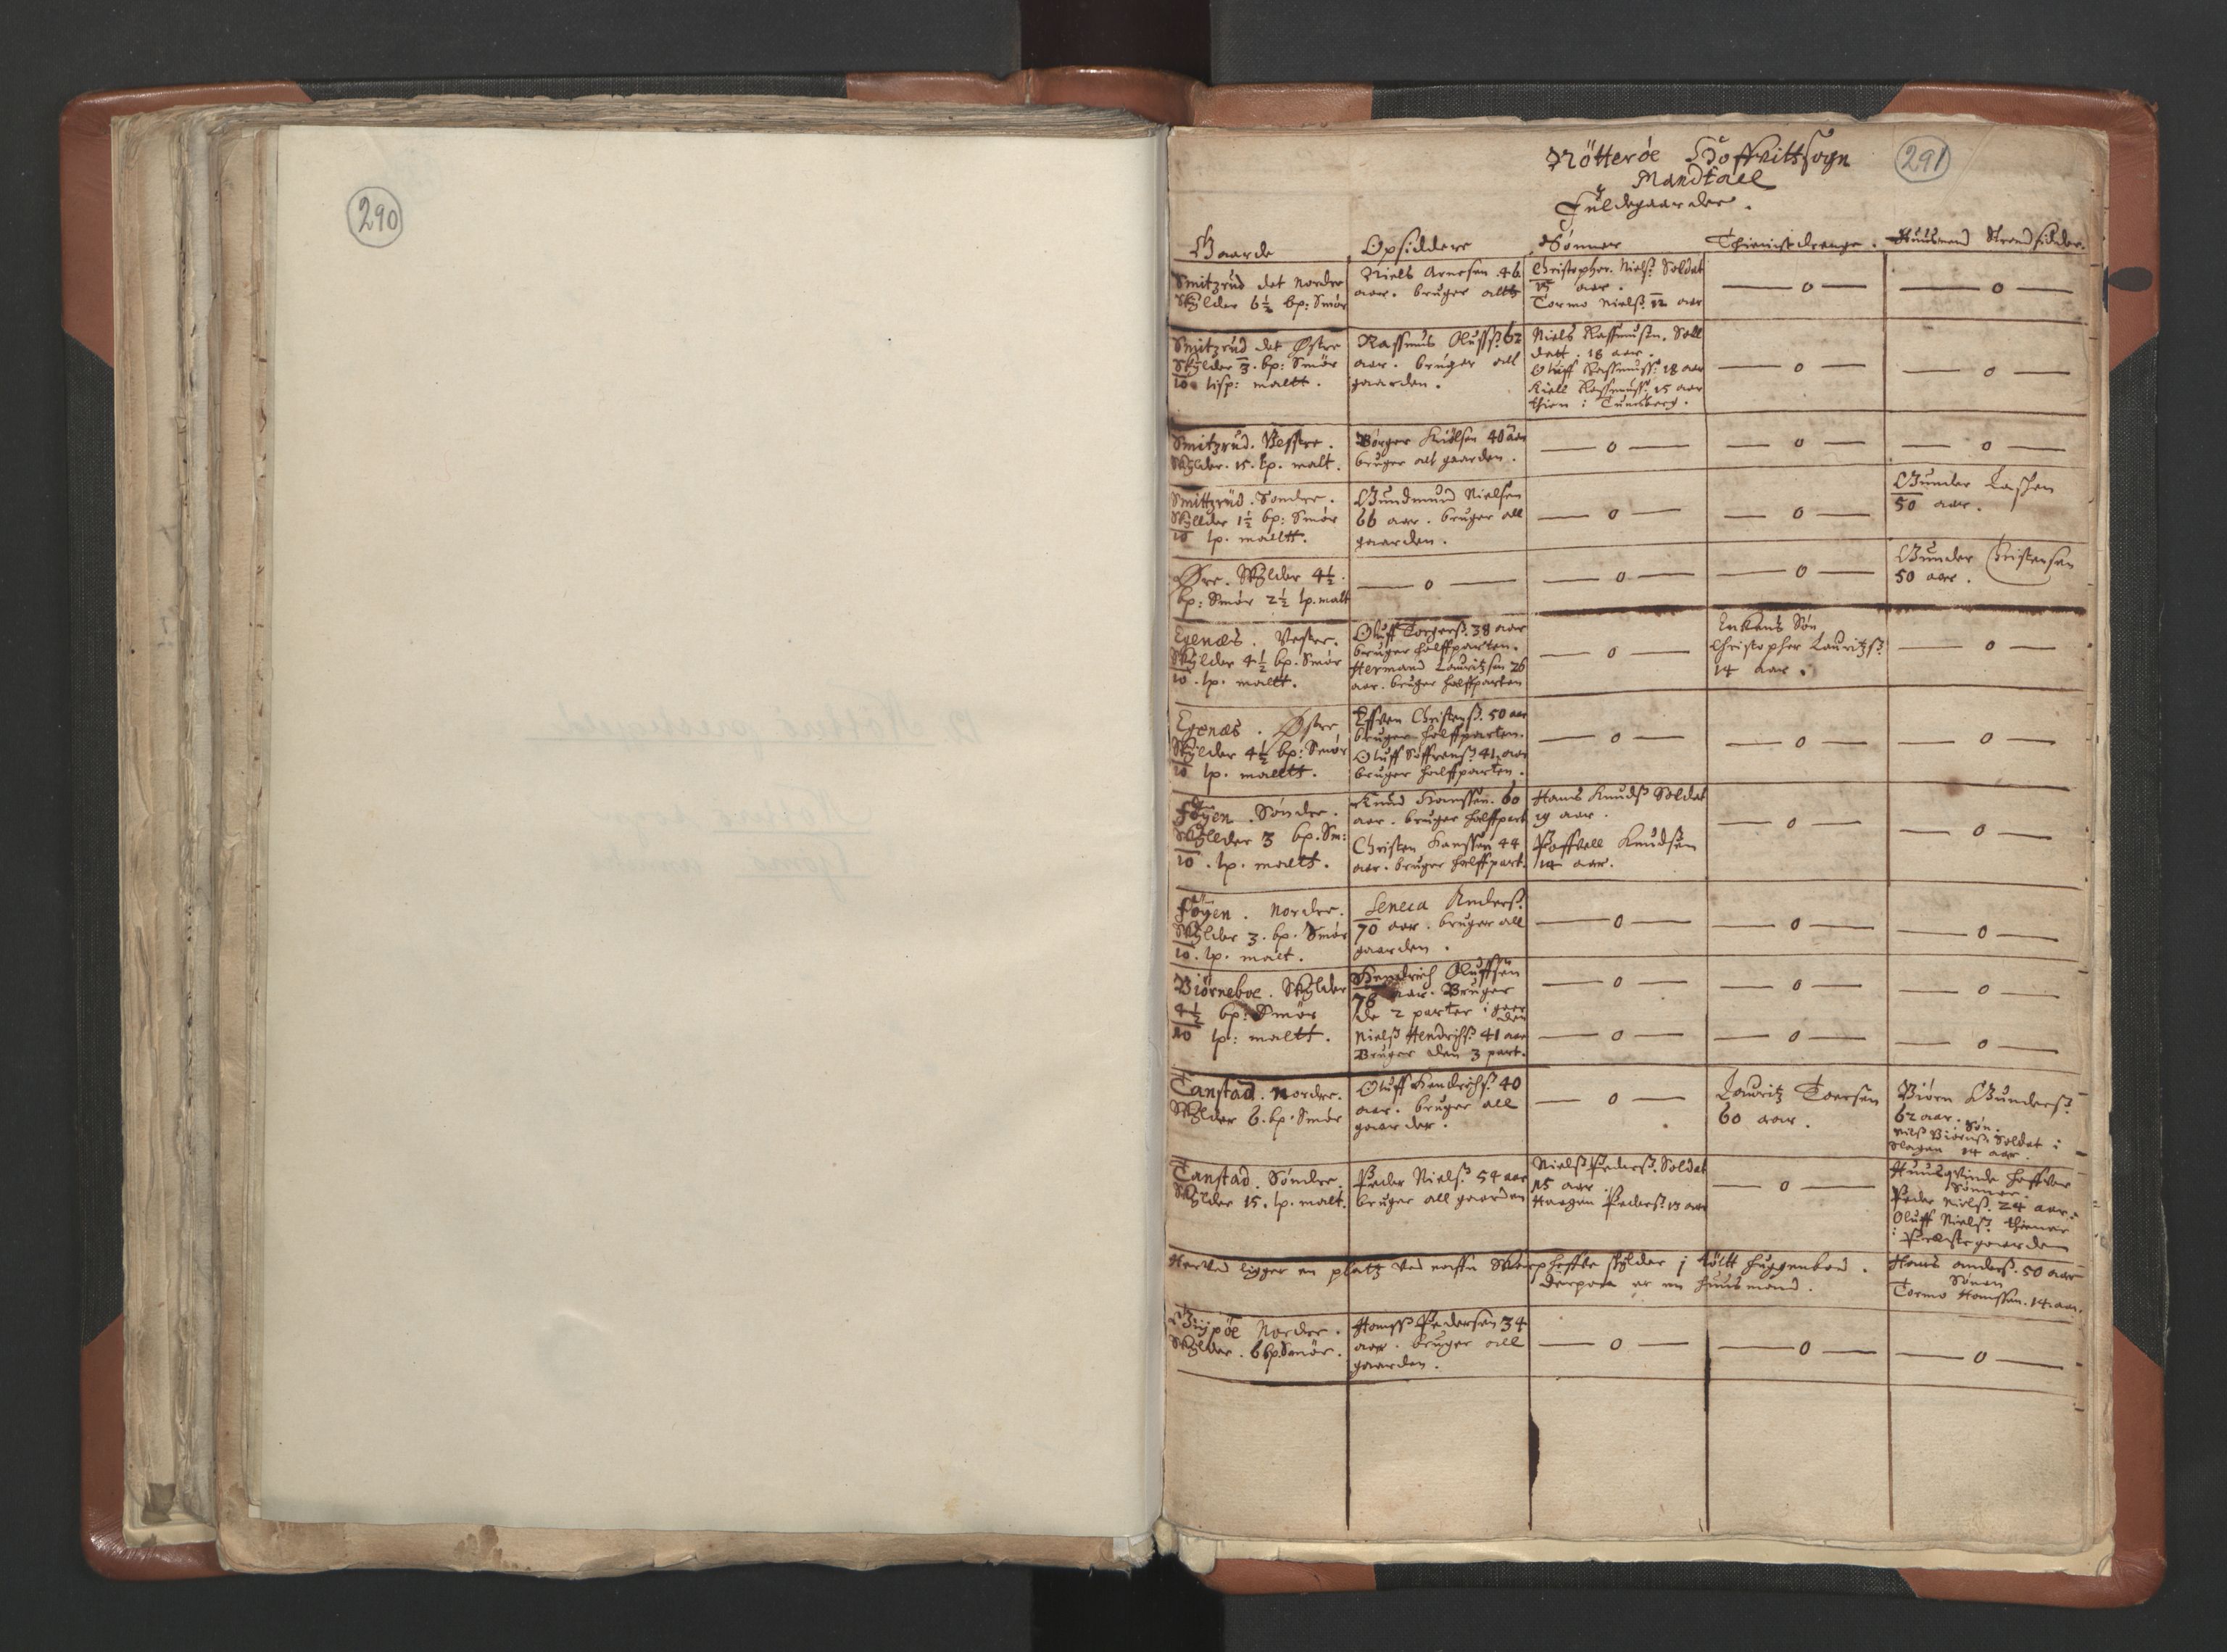 290
291
Nötteröe Hoffuittsogn
Mandtall
Fuldegaarder.
Gaarde
Opsiddere
Sönner
Thienistdrenge.
Huusmend Strandsidder.
Smitzrud det Nordre
Skylder 6½ bp: Smör
Niels Arnesen 46
aar. bruger altt
Christopher Nielß: Soldat
15 aar.
Tormo Nielß: 12 aar
— o —
— o —
Smitzrud det Østre
Skylder 3. bp: Smör
10 lisp: maltt.
Rassmus Oluffß: 62
aar. bruger all
gaarden.
Niels Rassmußn. Soll
datt. 18 aar.
Oluff Rassmuß: 18 aar
Kield Rassmuß: 15 aar
thien i Tunsberg.
— o —
— o —
Smitzrud. Vestre.
Skylder. 15. lp. malt.
Börger Kiölsen 40 aar
bruger alt gaarden.
— o —
— o —
— o —
Smittzrud. Sondre.
Skyllder 1½ bp: Smör
10 lp. malltt.
Gundmund Nielsen
66 aar. bruger all
gaarden.
— o —
— o —
Gunder Lassen
50 aar.
Øre. Skylder 4½.
bp: Smör 2½ lp. malt
— o —
— o —
— o —
Gunder Christensen
50 aar.
Egenæs. Vestre.
Skylder 4½ bp. Smör
10. lp. malltt.
Oluff Torgerß. 38 aar
bruger halffparten.
Hermand Lauritzsen 26
aar. bruger halffparten
— o —
Enkens Sön
Christopher Lauritzß:
14 aar.
— o —
Egenæs. Østre
Skylder 4½ bp: Smör
10 lp. malltt.
Effven Christenß. 50 aar
bruger halffparten.
Oluff Söffrenß: 41 aar
bruger halffparten.
— o —
— o —
— o —
Föyen. Söndre.
Skyllder 3 bp. Sm:
10. lp. maltt.
Knud Hanssen. 60
aar. bruger halffpart
Christen Hanssen 44
aar. bruger halffpart.
Hans Knudß Soldat
19 aar.
Poffvell Knudsen
14 aar.
— o —
— o —
Föyen. Nordre.
Skylder 3. bp. Smör
10. lp. malt.
Seneca Anderß.
70 aar. bruger all
gaarden.
— o —
— o —
— o —
Biörneboe. Skylder
4½ bp: Smör
10 lp: maltt.
Hendrich Oluffsen
76 aar. Bruger
de 2 parter i gaar
den
Nielß Hendrichß: 41 aar
Bruger den 3 part.
— o —
— o —
— o —
— o —
— o —
— o —
Tanstad. Nordre.
Skylder 6. bp. Smör
Oluff Hendrichß: 40
aar. bruger all
gaarder.
— o —
Lauritz Toersen
60 aar.
Biörn Gunderß:
62 aar. Sön.
Nilß Biörnß: Soldat i
Slagen 14 aar.
Tanstad. Söndre.
Skylder 15. lp. malt.
Peder Nielß: 54 aar
bruger all gaarden
Nielß Pederß. Soldat
15 aar
Haagen Pederß: 13 aar
— o —
Huusqvinde haffver
Sönner.
Peder Nielß. 24 aar.
Oluff Nielß: thiener
i Prestegaarden
Herved ligger en platz ved skylder j tölt huggenbord.
derpaa er en huusmand.
Hans Anderß. 50 aar
Sönen
Tormo Hanssen. 14. aar.
Gipöe Nordre.
Skylder. 6 bp. Smör.
Hanß Pedersen 34
aar. bruger all
gaarden.
— o —
— o —
— o —